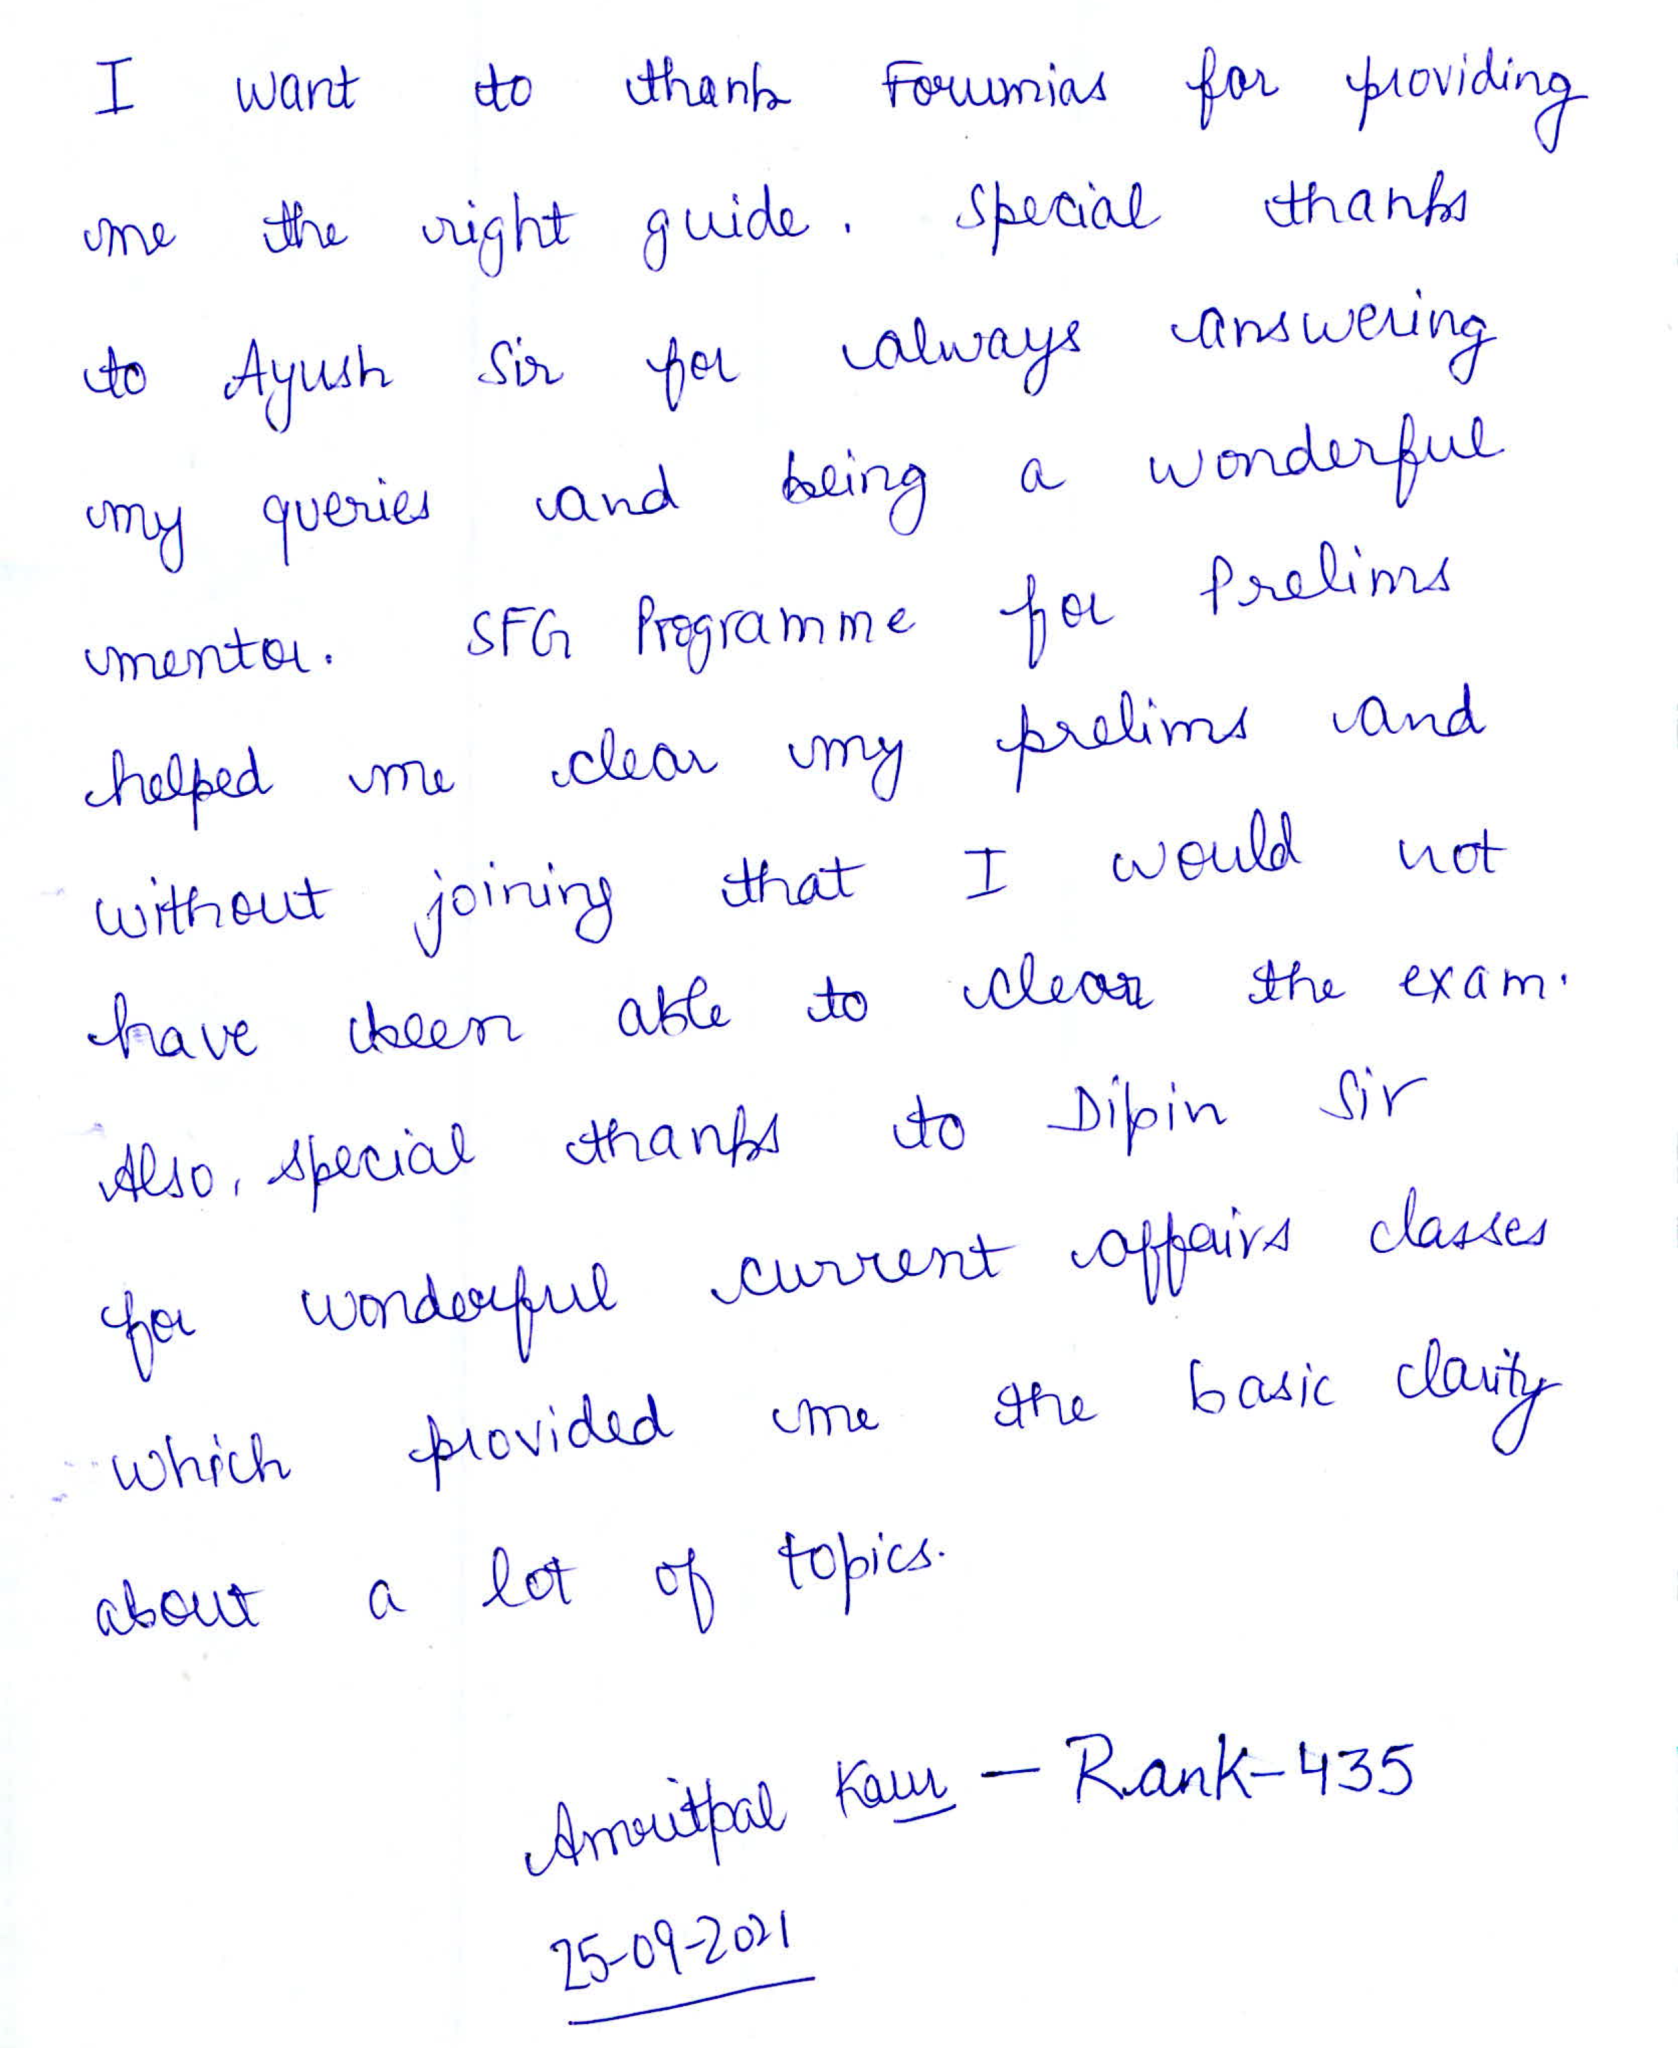 I want to thank Forumias for providing
me the right guide. Special thanks
to Ayush Sir for always answering
my queries and being a wonderful
mentor. SFG Programme for Prelims
helped me clear my prelims and
without joining that I would not
have been able to clear the exam.
Also, special thanks to Dipin Sir
for wonderful current affairs classes
which provided me the basic clarity
about a lot of topics.
Amritpal Kaur — Rank-435
25-09-2021